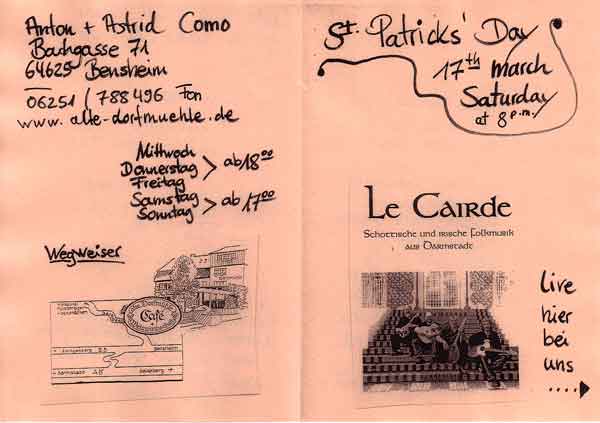 Anton + Astrid Como
Bachgasse 71
64625 Bensheim
06251 / 788496 Fon
www.alte-dorfmuehle.de
Mittwoch
Donnerstag
Freitag
> ab 18⁰⁰
Samstag
Sonntag
> ab 17⁰⁰
Wegweiser
Café
Bensheim
Heidelberg
St. Patricks' Day
17th march
Saturday
at 8 p.m.
Le Cairde
Schottische und irische Folkmusik
aus Darmstadt
Live
hier
bei
uns